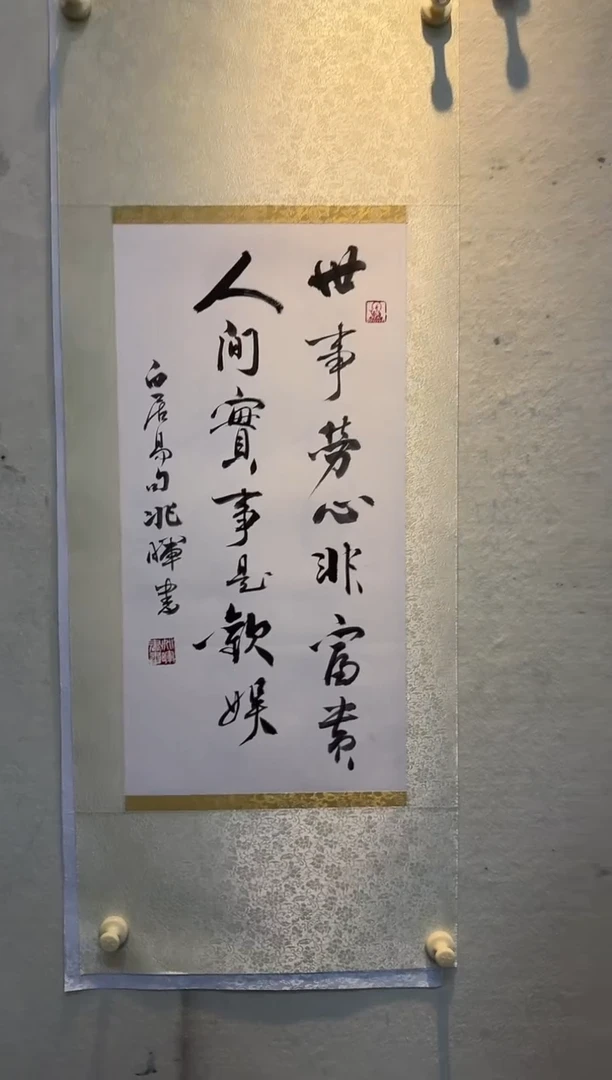 世事劳心非富贵
人间實事是歡娱
白居易句兆暉書